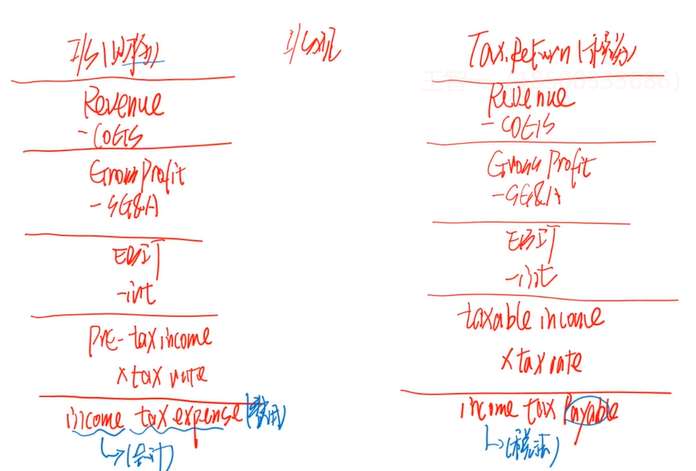 I/S(财务)
I/S
Tax Return(税务)
Revenue
- COGS
Gross Profit
- SG&A
EBIT
- int
Pre-tax income
x tax rate
income tax expense(费用)
(会计)
Revenue
- COGS
Gross Profit
- SG&A
EBIT
- int
taxable income
x tax rate
income tax Payable
(税法)